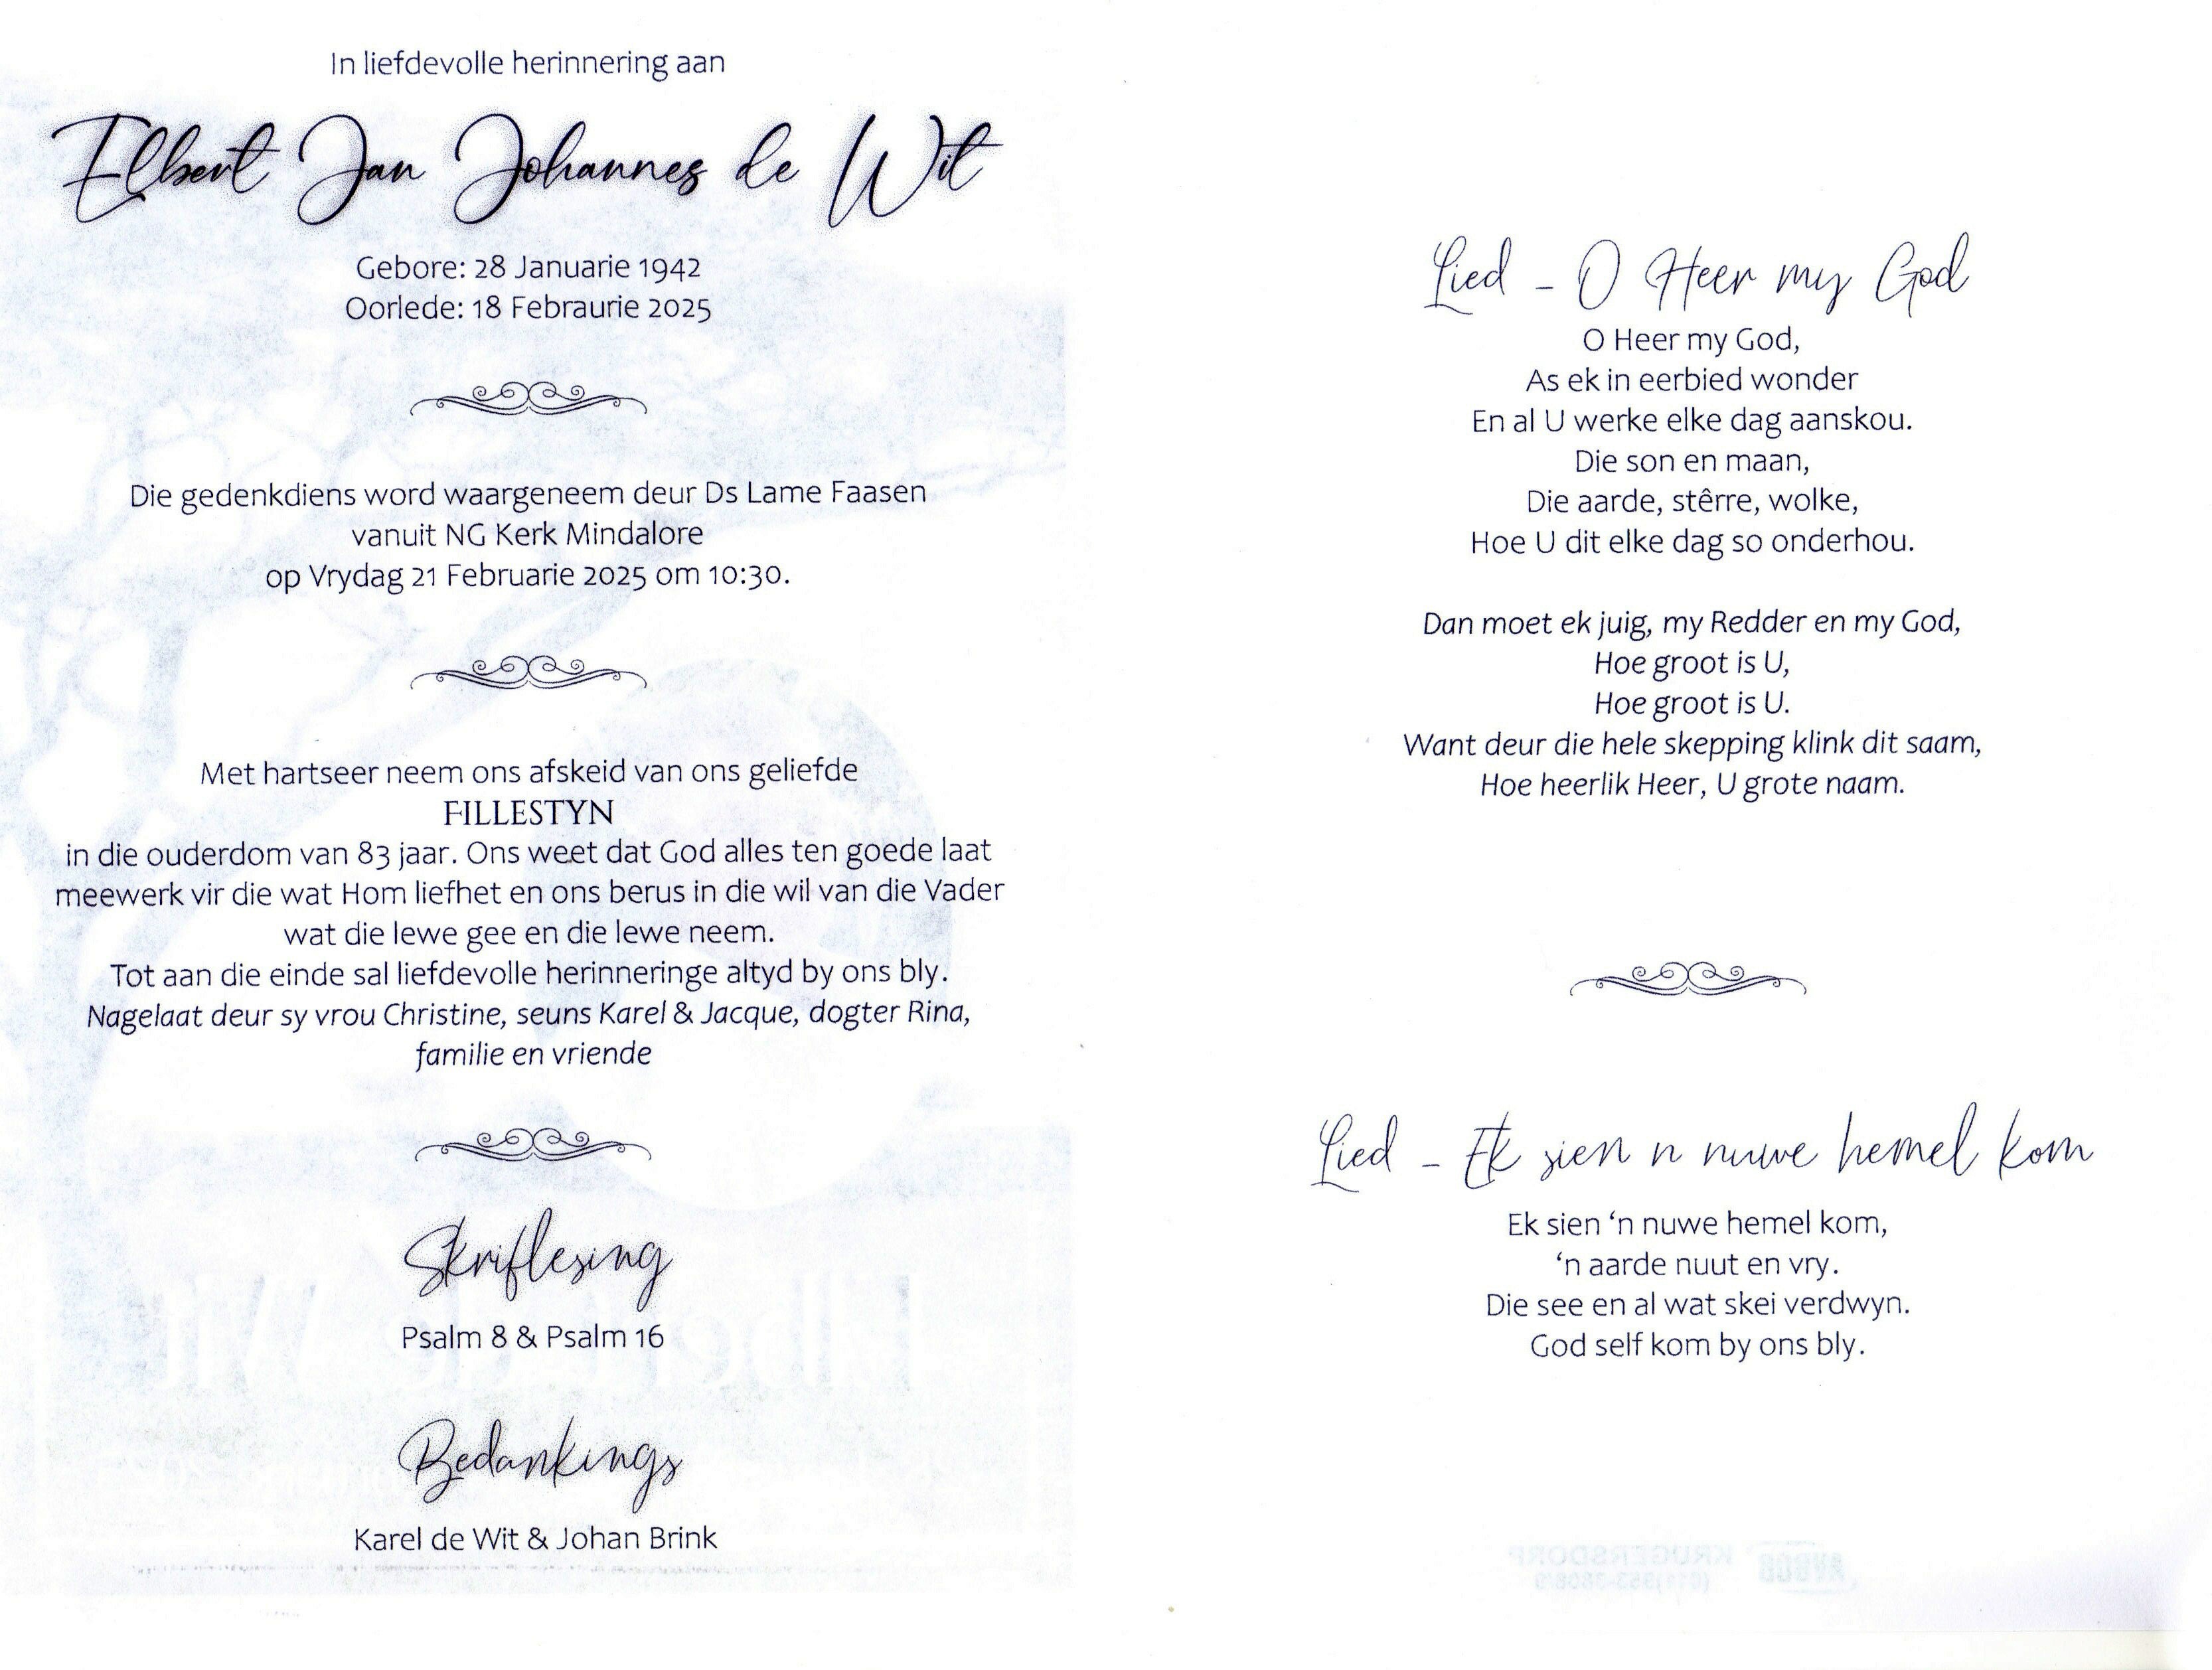 In liefdevolle herinnering aan
Elbert Jan Johannes de Wit
Gebore: 28 Januarie 1942
Oorlede: 18 Febraurie 2025
Die gedenkdiens word waargeneem deur Ds Lame Faasen
vanuit NG Kerk Mindalore
op Vrydag 21 Februarie 2025 om 10:30.
Met hartseer neem ons afskeid van ons geliefde
FILLESTYN
in die ouderdom van 83 jaar. Ons weet dat God alles ten goede laat
meewerk vir die wat Hom liefhet en ons berus in die wil van die Vader
wat die lewe gee en die lewe neem.
Tot aan die einde sal liefdevolle herinneringe altyd by ons bly.
Nagelaat deur sy vrou Christine, seuns Karel & Jacque, dogter Rina,
familie en vriende
Skriflesing
Psalm 8 & Psalm 16
Bedankings
Karel de Wit & Johan Brink
Lied - O Heer my God
O Heer my God,
As ek in eerbied wonder
En al U werke elke dag aanskou.
Die son en maan,
Die aarde, stêrre, wolke,
Hoe U dit elke dag so onderhou.
Dan moet ek juig, my Redder en my God,
Hoe groot is U,
Hoe groot is U.
Want deur die hele skepping klink dit saam,
Hoe heerlik Heer, U grote naam.
Lied - Ek sien n nuwe hemel kom
Ek sien ‘n nuwe hemel kom,
‘n aarde nuut en vry.
Die see en al wat skei verdwyn.
God self kom by ons bly.
KRUGERSDORP
AVBOB